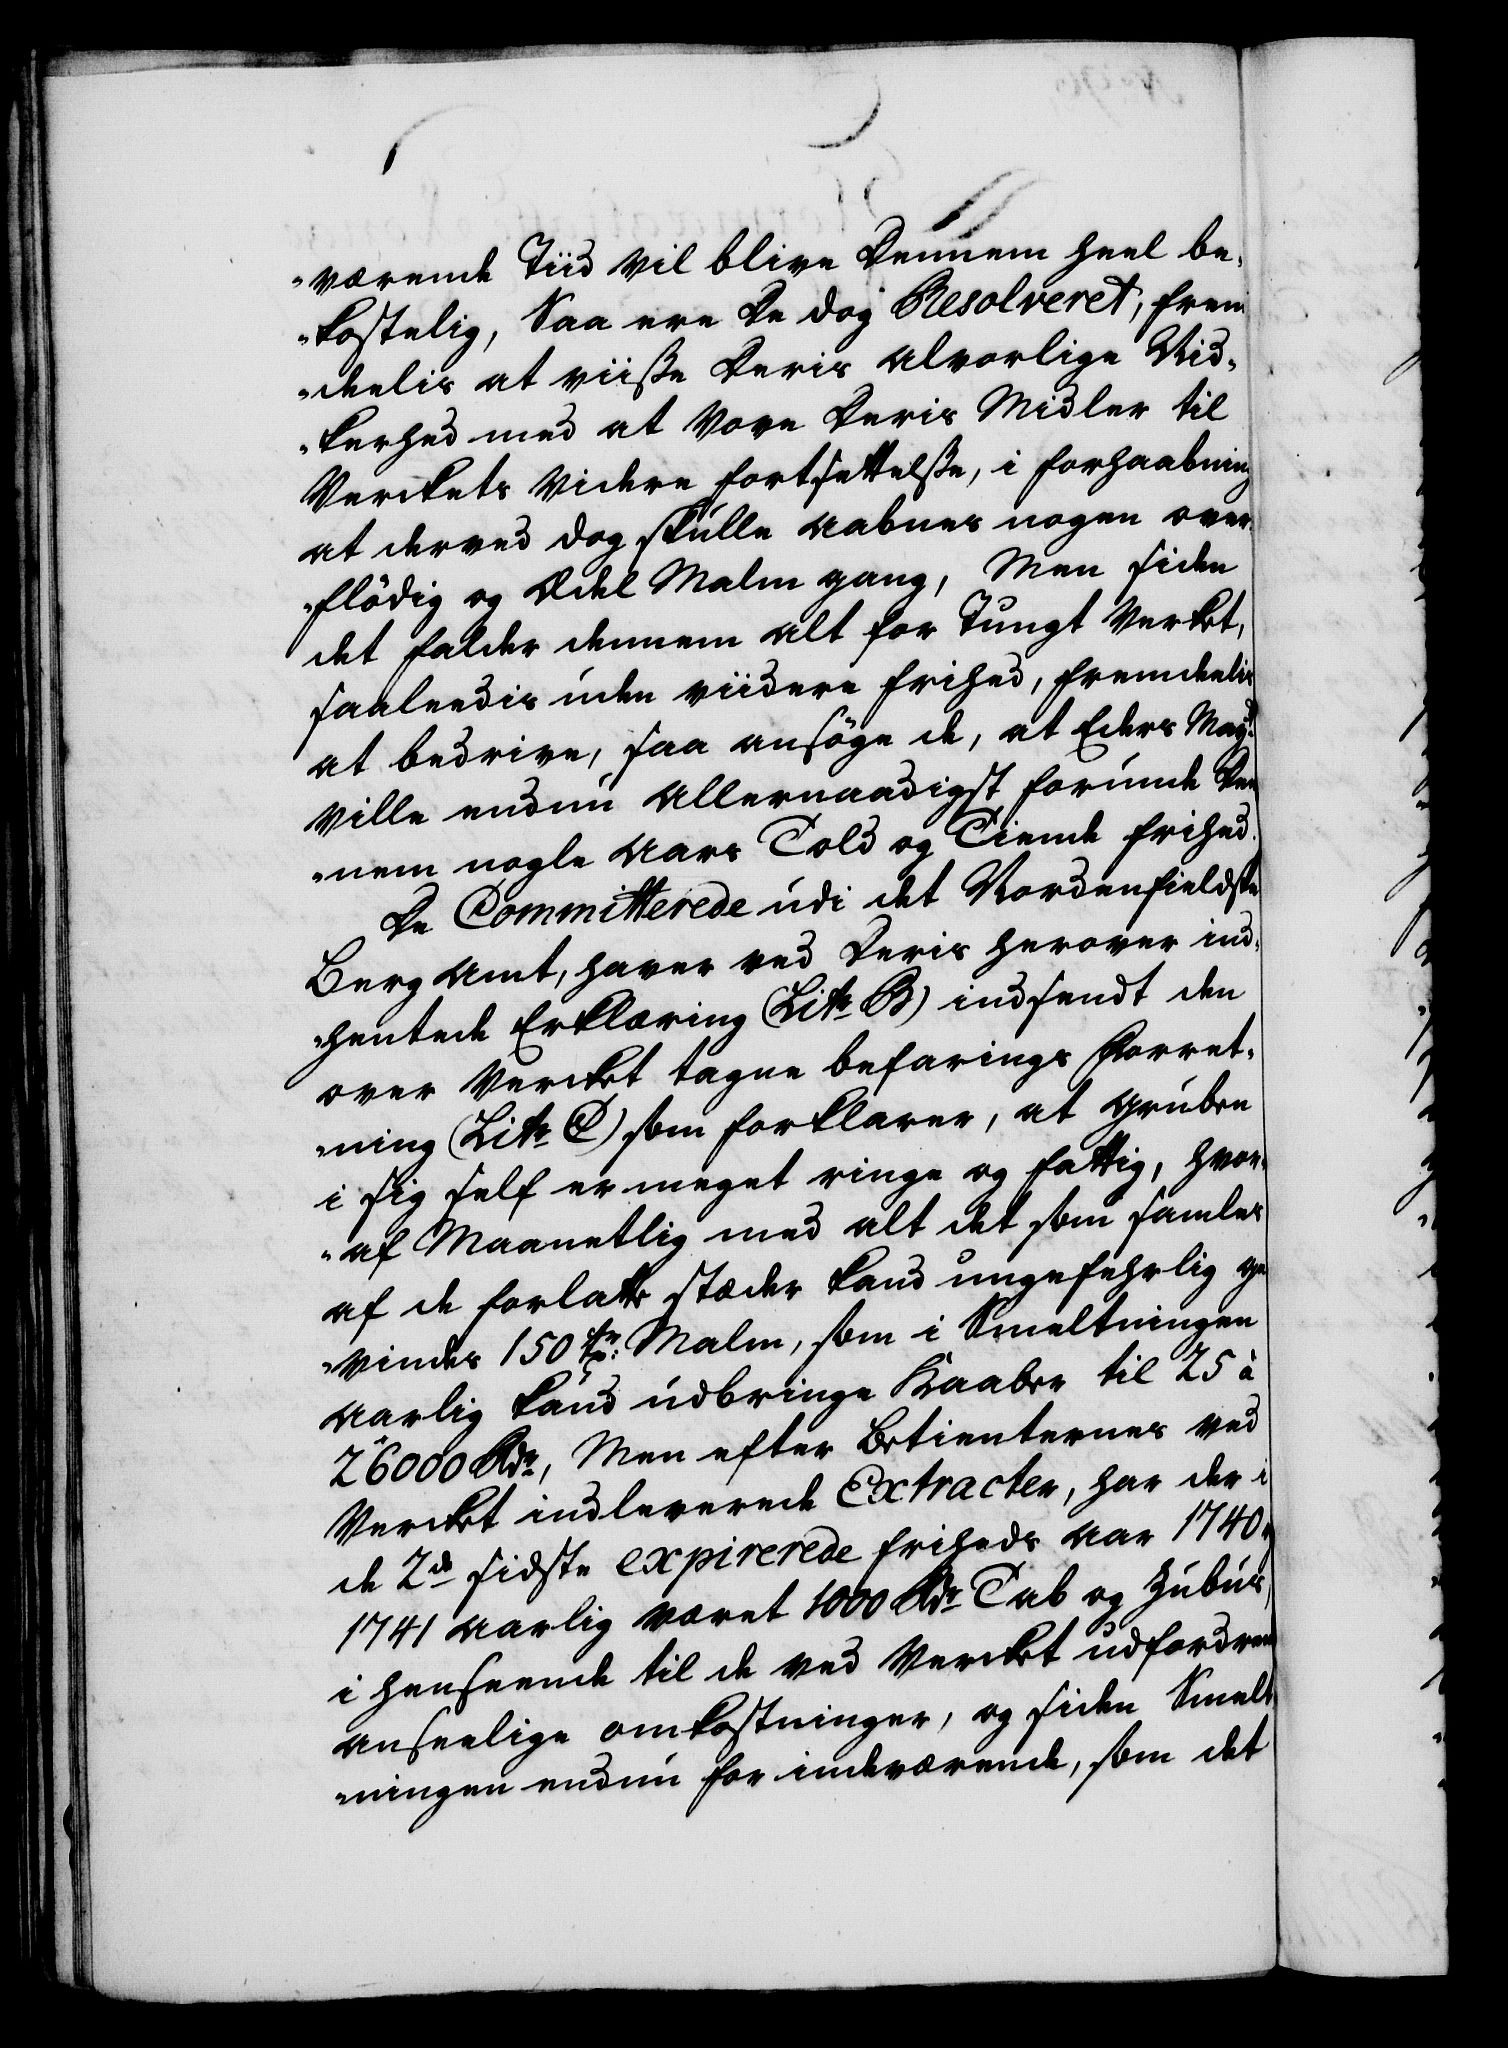 -værende Tiid vil blive Dennem heel be-
-kostelig, Saa ere De dog Resolveret, frem
-deelis at viisse Deris alvorlige Vid-
-kerhed med at Vove Deris Midler til
Verckets Videre fortsettelsse, i forhaabning
at derved dog skulle aabnes nogen over-
-flödig og Ædel Malm gang, Men siden
det falder dennem alt for Tungt Verket,
saaleedis uden viidere frihed, fremdeelis
at bedrive, saa ansöge de, at Eders May:t
ville endnu Allernaadigst forunde Den
-nem nogle Aars Told og Tiende frihed.
De Committerede udi det Nordenfieldske
Berg Amt, haver ved Deris herover ind-
-hentede Erklæring (Litr B) indsendt den
over Vercket tagne befarings Forret-
-ning (Litr C) som forklarer, at Gruben
i sig self er meget ringe og fattig, hvor-
-af Maanetlig med alt det som samles
af de forlatte stæder kand ungefehrlig ge
-vindes 150 tr: Malm, som i Smeltningen
aarlig kand udbringe Kaaber til 25 à
26000 Rdr, Men efter Betienternes ved
Verket indleverede Extracter, har der i
de 2de sidste expirerede friheds Aar 1740,
1741 aarlig været 1000 Rdr Tab og Zubus,
i henseende til de ved Vercket udfordrende
anseelige omkostninger, og siden Smelt
-ningen endnu for indeværende, som det